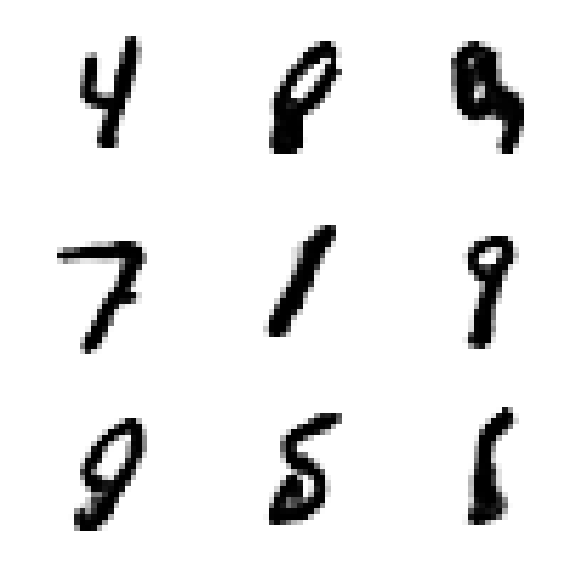 4 8 9
7 1 9
9 5 6